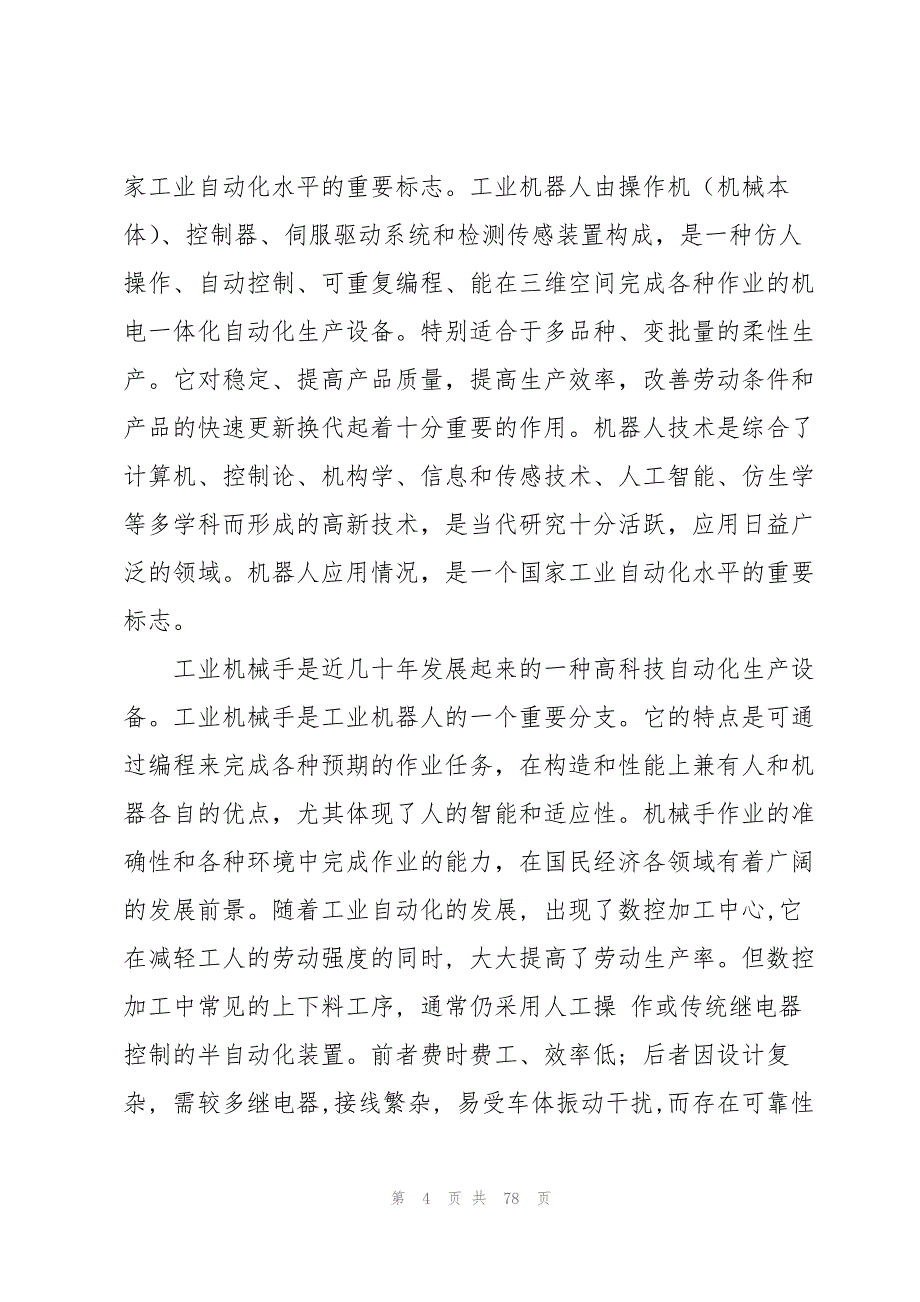 家工业自动化水平的重要标志。工业机器人由操作机（机械本
体）、控制器、伺服驱动系统和检测传感装置构成，是一种仿人
操作、自动控制、可重复编程、能在三维空间完成各种作业的机
电一体化自动化生产设备。特别适合于多品种、变批量的柔性生
产。它对稳定、提高产品质量，提高生产效率，改善劳动条件和
产品的快速更新换代起着十分重要的作用。机器人技术是综合了
计算机、控制论、机构学、信息和传感技术、人工智能、仿生学
等多学科而形成的高新技术，是当代研究十分活跃，应用日益广
泛的领域。机器人应用情况，是一个国家工业自动化水平的重要
标志。
工业机械手是近几十年发展起来的一种高科技自动化生产设
备。工业机械手是工业机器人的一个重要分支。它的特点是可通
过编程来完成各种预期的作业任务，在构造和性能上兼有人和机
器各自的优点，尤其体现了人的智能和适应性。机械手作业的准
确性和各种环境中完成作业的能力，在国民经济各领域有着广阔
的发展前景。随着工业自动化的发展, 出现了数控加工中心,它
在减轻工人的劳动强度的同时, 大大提高了劳动生产率。但数控
加工中常见的上下料工序, 通常仍采用人工操 作或传统继电器
控制的半自动化装置。前者费时费工、效率低; 后者因设计复
杂, 需较多继电器,接线繁杂, 易受车体振动干扰,而存在可靠性
第 4 页 共 78 页